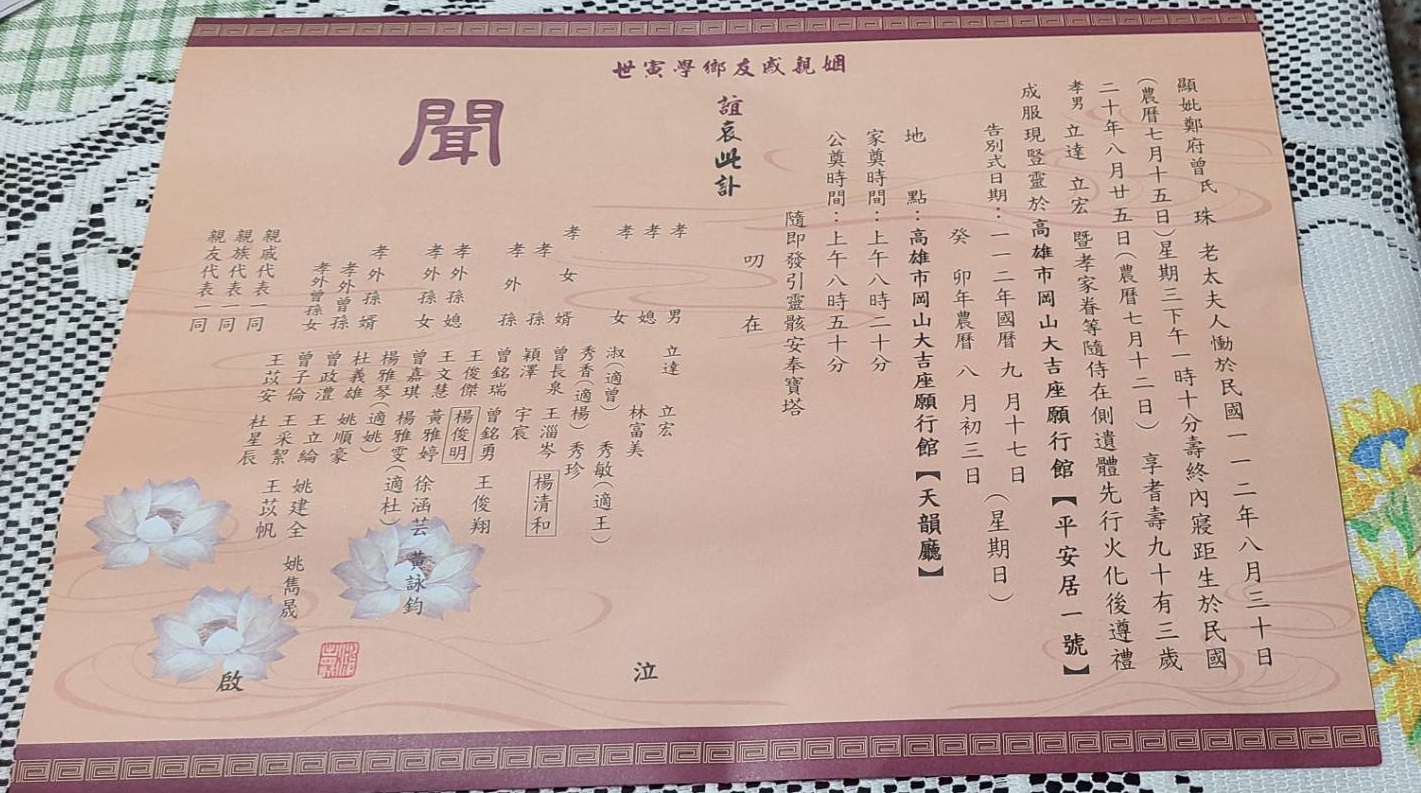 顯妣鄭府曾氏 珠 老太夫人慟於民國一一二年八月三十日
(農曆七月十五日)星期三下午一時十分壽終內寢距生於民國
二十年八月廿五日(農曆七月十二日) 享耆壽九十有三歲
孝男 立達 立宏 暨孝家眷等隨侍在側遺體先行火化後遵禮
成服現豎靈於高雄市岡山大吉座願行館【平安居一號】
告別式日期：一一二年國曆 九 月十七日 (星期日)
癸 卯年農曆 八 月初三日
地 點：高雄市岡山大吉座願行館【天韻廳】
家奠時間：上午八時二十分
公奠時間：上午八時五十分
隨即發引靈骸安奉寶塔
叨在
姻親戚友鄉學寅世
誼哀此訃
聞
孝男 立達 立宏
孝媳 林富美
孝女 淑(適曾) 秀敏(適王)
秀香(適楊) 秀珍
孝女婿 曾長泉 王淄岑 楊清和
孝孫 穎澤 宇宸
孝外孫 曾銘瑞 曾銘勇 王俊翔
王俊傑 楊俊明
孝外孫媳 王文慧 黃雅婷 徐涵芸 黃詠鈞
孝外孫女 曾嘉琪 楊雅雯(適杜)
楊雅琴(適姚)
孝外孫婿 杜義雄 姚順豪
孝外曾孫 曾政澧 王立綸 姚建全 姚雋晟
孝外曾孫女 曾子倫 王采絜 王苡帆
王苡安 杜星辰
親戚代表一同
親族代表一同
親友代表一同
泣
啟